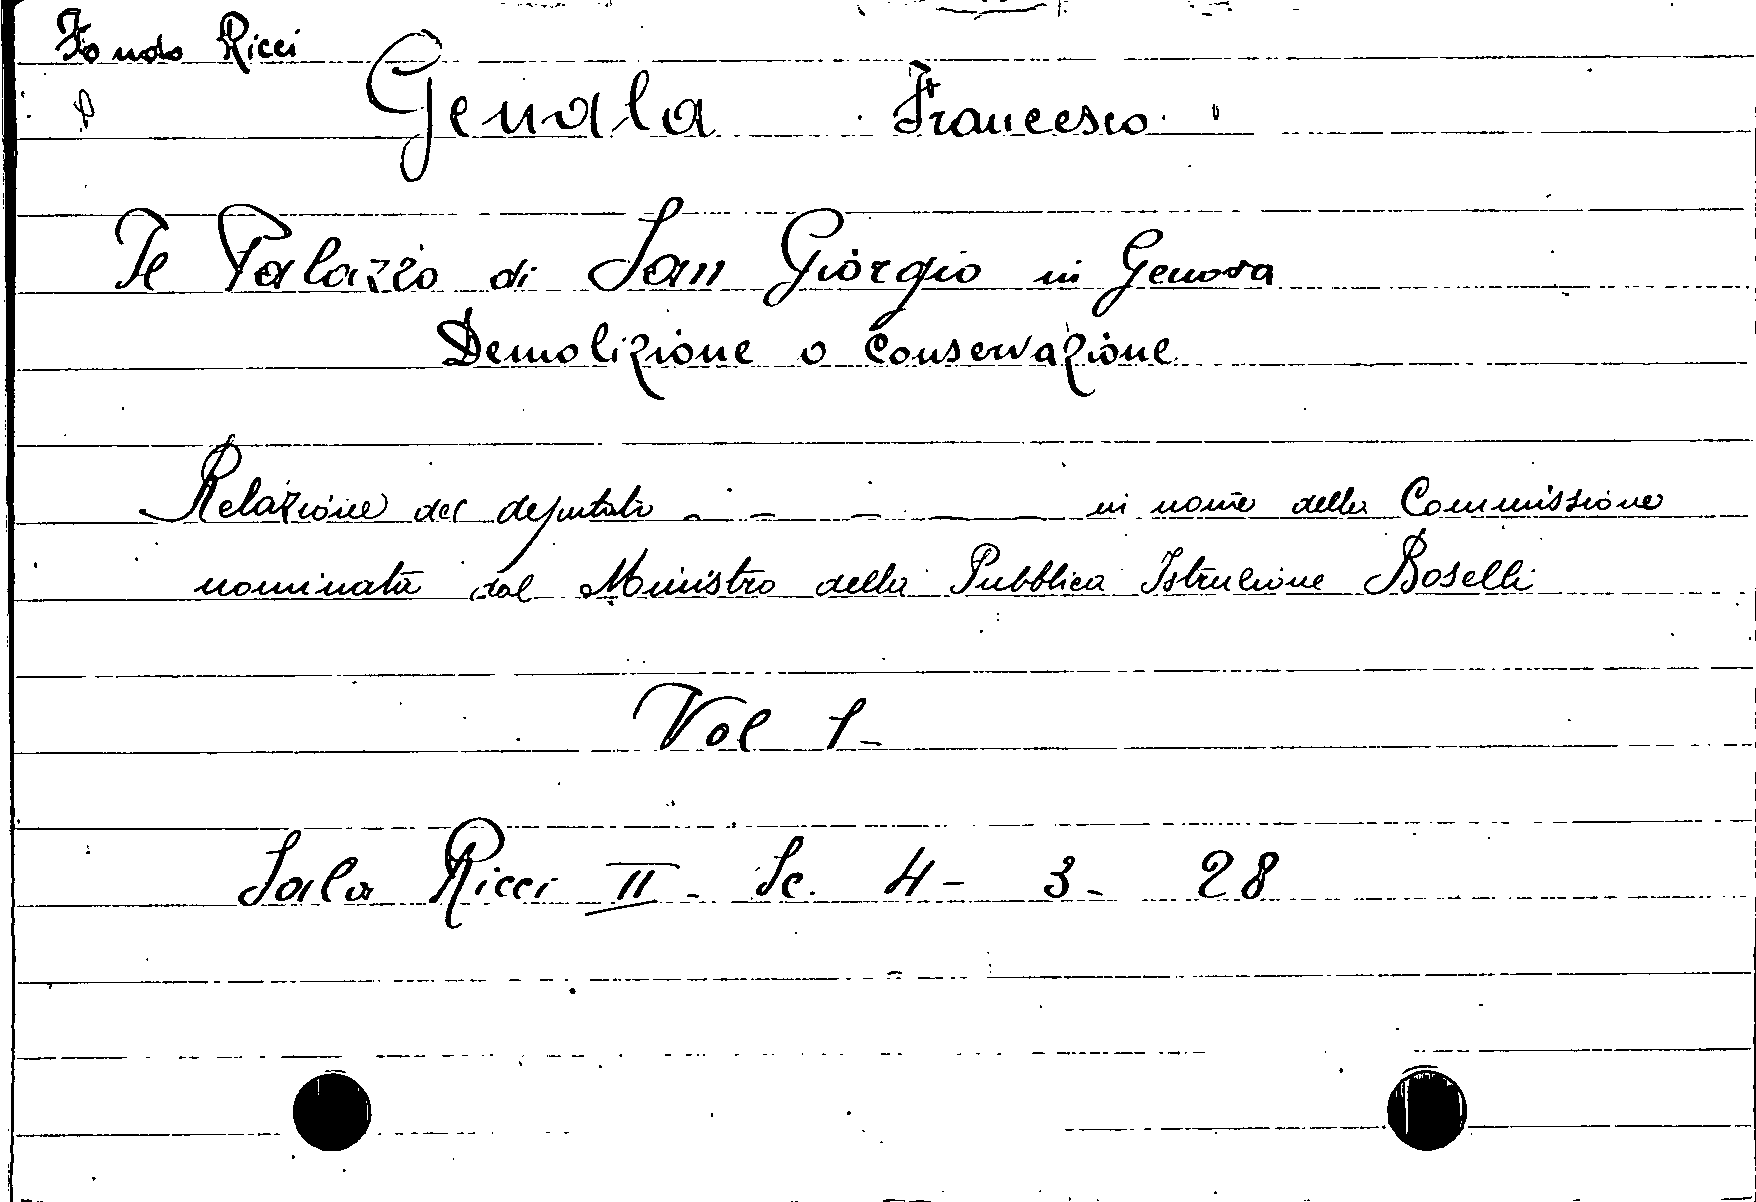 Fondo Ricci
Genala Francesco
Il Palazzo di San Giorgio in Genova
Demolizione o Conservazione
Relazione del deputato - - - — in nome della Commissione
nominata dal Ministro della Pubblica Istruzione Boselli
Vol 1-
Sala Ricci II - Sc. 4 - 3 - 28